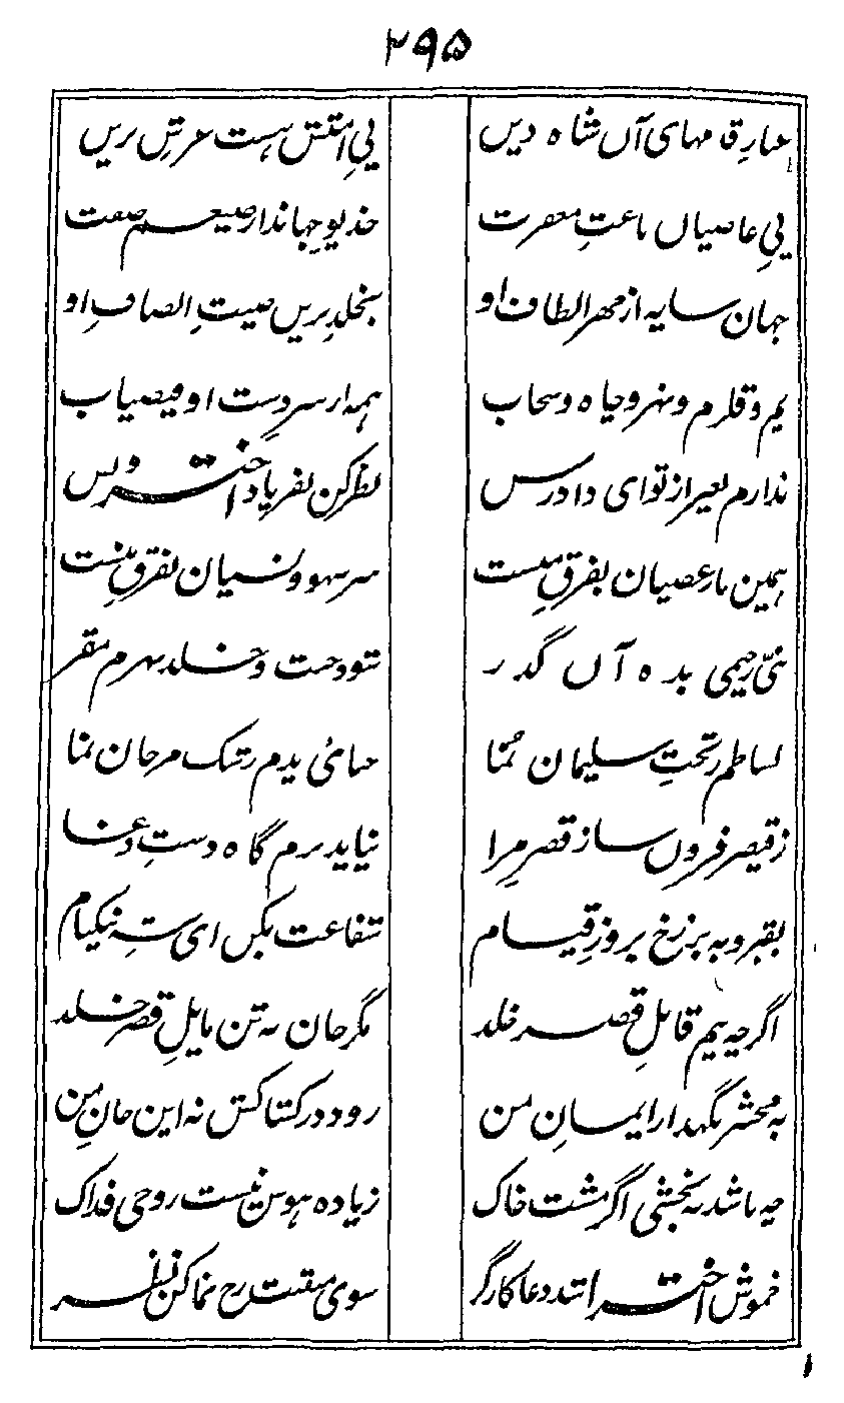 ۲۹۵
غبارِ قدمهای آں شاہ دیں
پیِ امتش ہست عرشِ بریں
پیِ عاصیاں باعثِ مغفرت
خدیوِ جہاندار صفت
جہان سایہ از مہر الطافِ او
بخلدِ بریں صیتِ انصافِ او
یم و قلزم و نہر و چاہ و سحاب
ہمہ از سرِ دست او فیضیاب
ندارم بغیر از تو ای دادرس
نظر کن بفریادِ اختر و بس
ہمیں بارِ عصیان بفرقِ منست
سرِ سہو و نسیان بفرقِ منست
نبیّ رحیمی بدہ آں گذر
شود جنت و خلد بہرم مقر
بساطم ز تختِ سلیمان نُما
حنائی یدم رشک مرجان نما
ز قیصر فزوں ساز قصرِ مرا
نیاید برم گاہ دستِ دغا
بقبر و بہ برزخ بروزِ قیام
شفاعت بکن ای شہِ نیکنام
اگرچہ نیم قابلِ قصرِ خلد
مگر جان نہ تن مایلِ قصرِ خلد
بہ محشر نگہدار ایمانِ من
رود در کشاکش نہ این جانِ من
چہ باشد بہ بخشی اگر مشت خاک
زیادہ ہوس نیست روحی فداک
خموش اختر اشد دعا کارگر
سوی منقبت رخ نما کن نظر